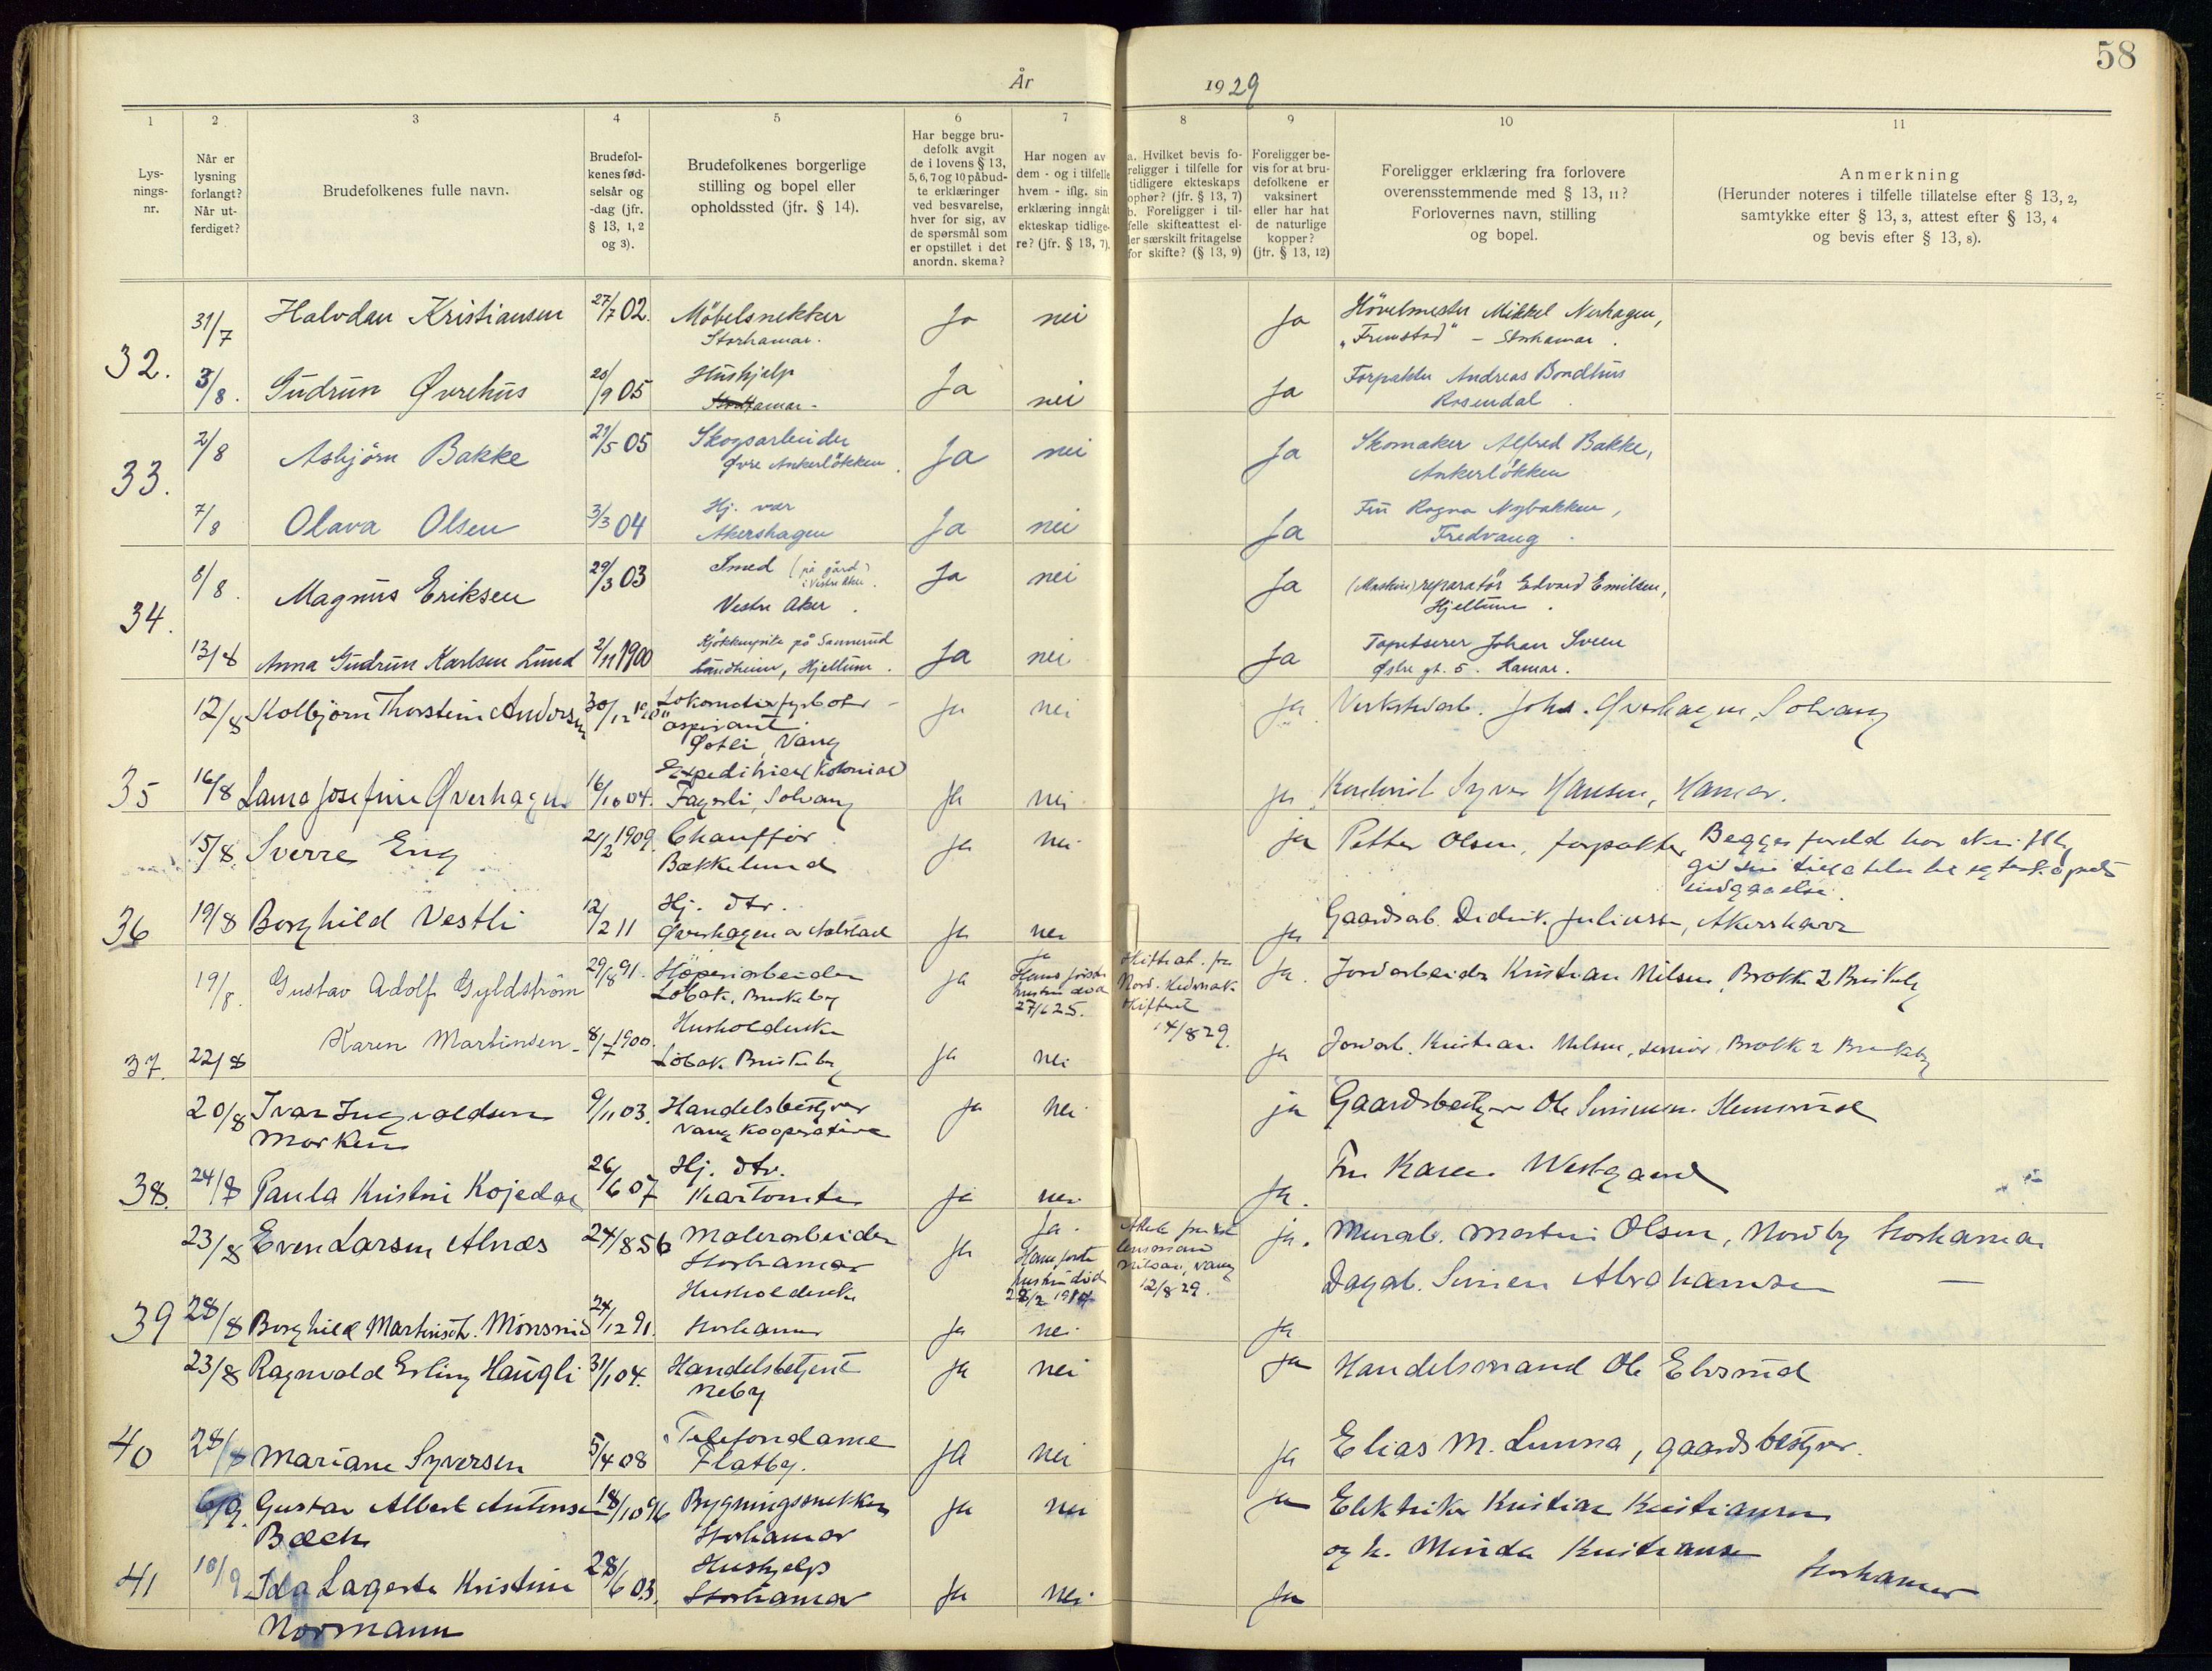 58
År 1929
1 2 3 4 5 6 7 8 9 10 11
Lys-
nings-
nr.
Når er
lysning
forlangt?
Når ut-
ferdiget?
Brudefolkenes fulle navn.
Brudefol-
kenes fød-
selsår og
-dag (jfr.
§ 13, 1, 2
og 3).
Brudefolkenes borgerlige
stilling og bopel eller
opholdssted (jfr. § 14).
Har begge bru-
defolk avgit
de i lovens § 13,
5, 6, 7 og 10 påbud-
te erklæringer
ved besvarelse,
hver for sig, av
de spørsmål som
er opstillet i det
anordn. skema?
Har nogen av
dem - og i tilfelle
hvem - iflg. sin
erklæring inngåt
ekteskap tidlige-
re? (jfr. § 13, 7).
a. Hvilket bevis fo-
religger i tilfelle for
tidligere ekteskaps
ophør? (jfr. § 13, 7)
b. Foreligger i til-
felle skifteattest el-
ler særskilt fritagelse
for skifte? (§ 13, 9)
Foreligger be-
vis for at bru-
defolkene er
vaksinert
eller har hat
de naturlige
kopper?
(jfr. § 13, 12)
Foreligger erklæring fra forlovere
overensstemmende med § 13, 11?
Forlovernes navn, stilling
og bopel.
Anmerkning
(Herunder noteres i tilfelle tillatelse efter § 13, 2,
samtykke efter § 13, 3, attest efter § 13, 4
og bevis efter § 13, 8).
32.
31/7 Halvdan Kristiansen 27/7 02. Möbelsnekker Ja nei Ja Hövelmester Mikkel Nerhagen,
Storhamar. "Fremstad" - Storhamar.
3/8. Gudrun Øvrehus 20/9 05 Hushjelp Ja nei Ja Forpakter Andreas Bondhus
Storhamar - Rosendal.
33.
2/8 Asbjörn Bakke 21/5 05 Skogsarbeider Ja nei Ja Skomaker Alfred Bakke,
Øvre Ankerlökken. Ankerlökken
7/8 Olava Olsen 3/3 04 Hj. vær Ja nei Ja Fru Ragna Nybakken,
Akershagen Fredvang.
34.
8/8. Magnus Eriksen 29/3 03 Smed (på gård Ja nei Ja (Maskin)reparatör Edvard Emilsen,
Vestre Aker. Hjellum.
13/8 Anna Gudrun Karlsen Lund 2/11 1900 Kjökkenpike på Sannerud Ja nei Ja Tapetserer Johan Sveen
Lundheim, Hjellum. Østre gt. 5. Hamar.
12/8 Kolbjörn Thorstein Andersen 30/12 Lokomotivfyrböter - Ja nei ja Verkstedarb. Johs. Øverhagen, Solvang
aspirant
Østli, Vang
35
16/8 Laura Josefine Øverhagen 16/10 04. Expeditrise (Kolonial) Ja nei ja Syver Hansen, Hamar.
Fagerli, Solvang
15/8. Sverre Eng 21/2 1909. Chauffør ja nei ja Petter Olsen, forpakter
Bækkelund
Begges foreld har
36
19/8 Borghild Vestli 12/2 11 Hj. dtr. Ja nei ja Gaardsarb. Didrik Juliussen, Akershaven
Øverhagen
19/8. Gustav Adolf Gyldström 29/8 91. ja Ja ja. Jordarbeider Kristian Nilsen, Brokk 2 Briskeby
Löbak, Briskeby Hans første
hustru død
27/6 25.
14/8 29.
37.
22/8 Karen Martinsen 8/7 1900. Husholderske Ja nei ja Jordarb. Kristian Nilsen, senior, Brokk 2 Briskeby
Löbak Briskeby
20/8 Ivar Ingvaldsen 9/11 03. Handelsbestyrer ja nei ja Gaardsbestyrer Ole Simensen
Morken Vang Kooperative
38.
24/8 Paula Kristni Kojedal 26/6 07 Hj. dtr. Ja nei Ja. Fru Karen Westgaard
Kartomten
23/8 Even Larsen Alnæs 24/8 56 Malerarbeider Ja Ja. ja. Murarb. Martin Olsen, Nordby Storhamar
Storhamar Hans første
hustru död
12/8 29.
39
28/8 Borghild Martinsdt. Mönsrud 24/12 91. Husholderske Ja nei ja Dagarb. Simen Abrahamsen -
Storhamar
23/8 Ragnvald Erling Haugli 31/1 04. Handelsbetjent Ja nei Ja Handelsmand Ole Elvsrud
Neby
40
28/8 Mariane Syversen 5/4 08 Telefondame Ja nei ja Elias M. Lunna, gaardsbestyrer.
Flatby.
6/9. Gustav Albert Antonsen 18/10 96 Bygningssnekker Ja nei ja Elektriker Kristian Kristiansen
Bæck Storhamar
og h. Minda Kristiansen
41
10/9 Ida Lagerta Kristine 28/6 03. Hushjelp Ja nei Ja Storhamar
Normann Storhamar